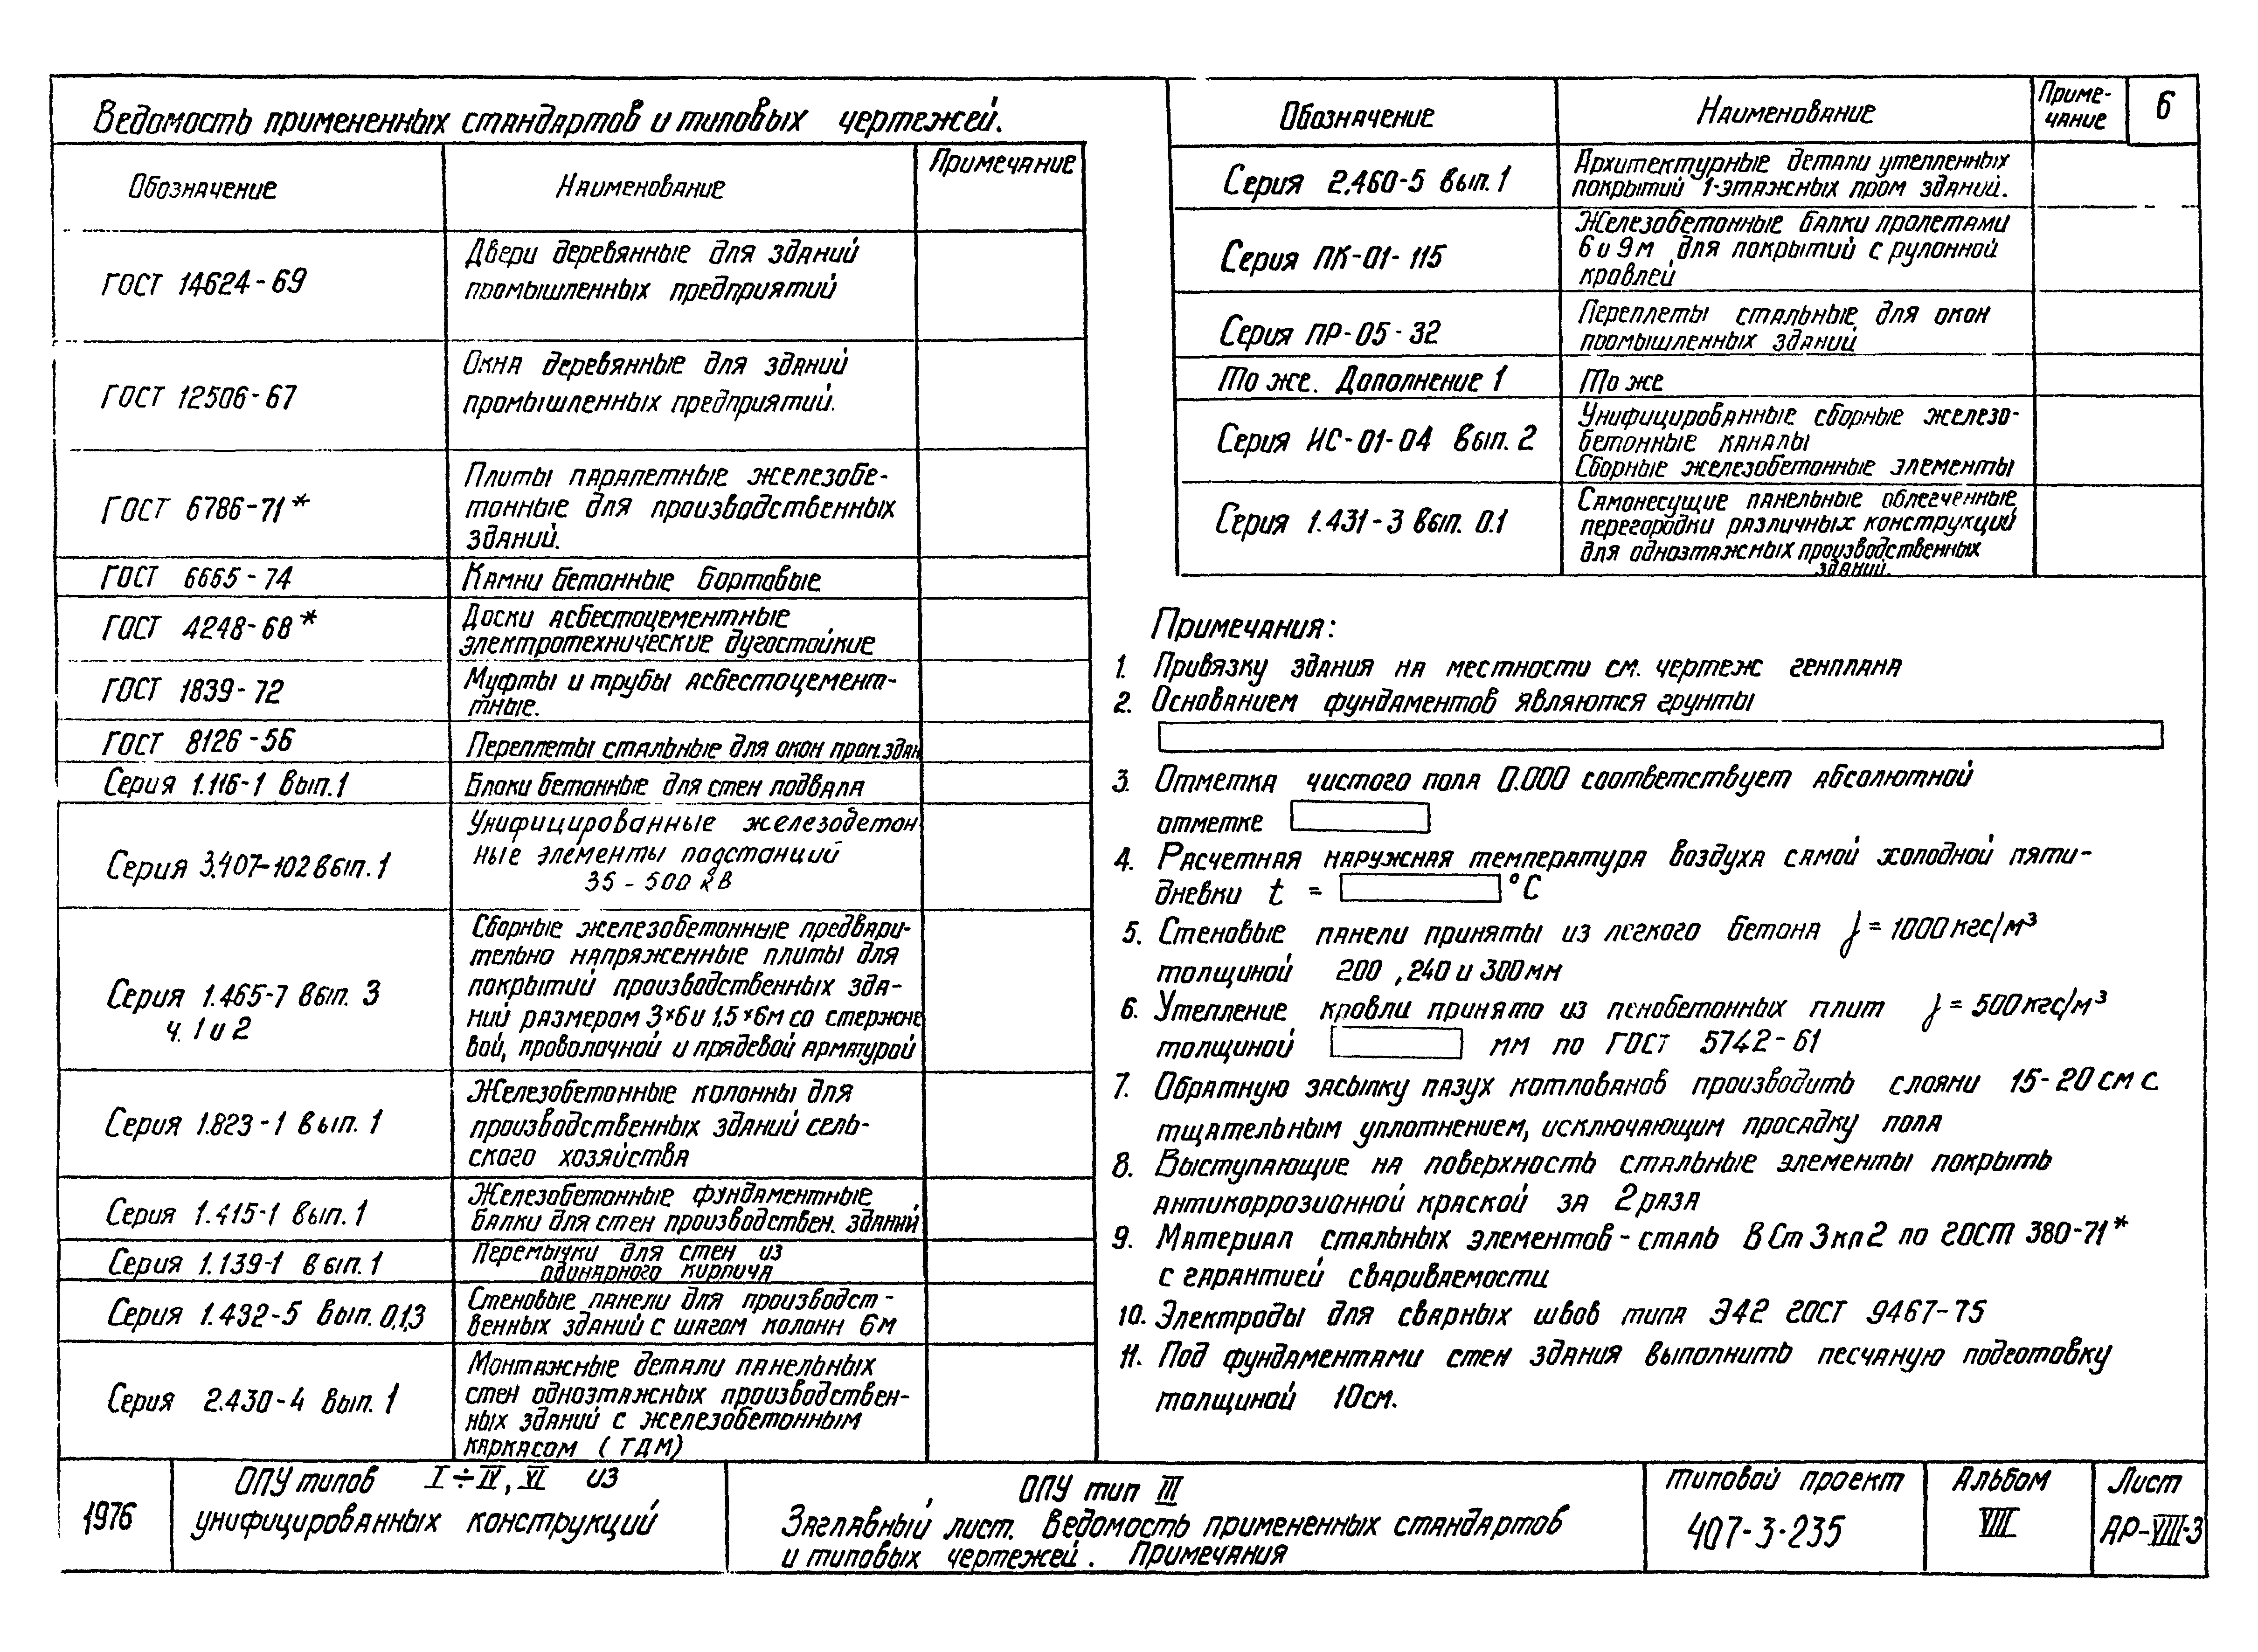 Ведомость примененных стандартов и типовых чертежей.
Обозначение Наименование Примечание
ГОСТ 14624-69 Двери деревянные для зданий
промышленных предприятий
ГОСТ 12506-67 Окна деревянные для зданий
промышленных предприятий.
ГОСТ 6786-71* Плиты парапетные железобе-
тонные для производственных
зданий.
ГОСТ 6665-74 Камни бетонные бортовые
ГОСТ 4248-68* Доски асбестоцементные
электротехнические дугостойкие
ГОСТ 1839-72 Муфты и трубы асбестоцемент-
тные.
ГОСТ 8126-56 Переплеты стальные для окон пром.здан
Серия 1.116-1 вып.1 Блоки бетонные для стен подвала
Серия 3.407-102 вып.1 Унифицированные железодетон
ные элементы подстанций
35-500 кВ
Серия 1.465-7 вып. 3
ч. 1 и 2
Сборные железобетонные предвари-
тельно напряженные плиты для
покрытий производственных зда-
ний размером 3×6 и 1.5×6м со стержне
вой, проволочной и прядевой арматурой
Серия 1.823-1 вып. 1 Железобетонные колонны для
производственных зданий сель-
ского хозяйства
Серия 1.415-1 вып.1 Железобетонные фундаментные
балки для стен производствен. зданий
Серия 1.139-1 вып.1 Перемычки для стен из
одинарного кирпича
Серия 1.432-5 вып. 0,1,3 Стеновые панели для производст-
венных зданий с шагом колонн 6м
Серия 2.430-4 вып. 1 Монтажные детали панельных
стен одноэтажных производствен-
ных зданий с железобетонным
каркасом (ТДМ)
Обозначение Наименование Приме-
чание
6
Серия 2.460-5 вып. 1 Архитектурные детали утепленных
покрытий 1-этажных пром зданий.
Серия ПК-01-115 Железобетонные балки пролетами
6 и 9м для покрытий с рулонной
кровлей
Серия ПР-05-32 Переплеты стальные для окон
промышленных зданий
То же. Дополнение 1 То же
Серия ИС-01-04 вып. 2 Унифицированные сборные железо-
бетонные каналы
Сборные железобетонные элементы
Серия 1.431-3 вып. 0.1 Самонесущие панельные облегченные
перегородки различных конструкций
для одноэтажных производственных
зданий.
Примечания:
1. Привязку здания на местности см. чертеж генплана
2. Основанием фундаментов являются грунты
3. Отметка чистого пола 0.000 соответствует абсолютной
отметке
4. Расчетная наружная температура воздуха самой холодной пяти-
дневки t = °С
5. Стеновые панели приняты из легкого бетона γ = 1000 кгс/м³
толщиной 200, 240 и 300мм
6. Утепление кровли принято из пенобетонных плит γ = 500 кгс/м³
толщиной мм по ГОСТ 5742-61
7. Обратную засыпку пазух котлованов производить слоями 15-20 см с
тщательным уплотнением, исключающим просадку пола
8. Выступающие на поверхность стальные элементы покрыть
антикоррозионной краской за 2 раза
9. Материал стальных элементов - сталь В Ст 3 кп 2 по ГОСТ 380-71*
с гарантией свариваемости
10. Электроды для сварных швов типа Э42 ГОСТ 9467-75
11. Под фундаментами стен здания выполнить песчаную подготовку
толщиной 10см.
1976
ОПУ типов I÷IV, VI из
унифицированных конструкций
ОПУ тип III
Заглавный лист. Ведомость примененных стандартов
и типовых чертежей. Примечания
типовой проект
407-3-235
Альбом
VIII
Лист
АР-VIII-3